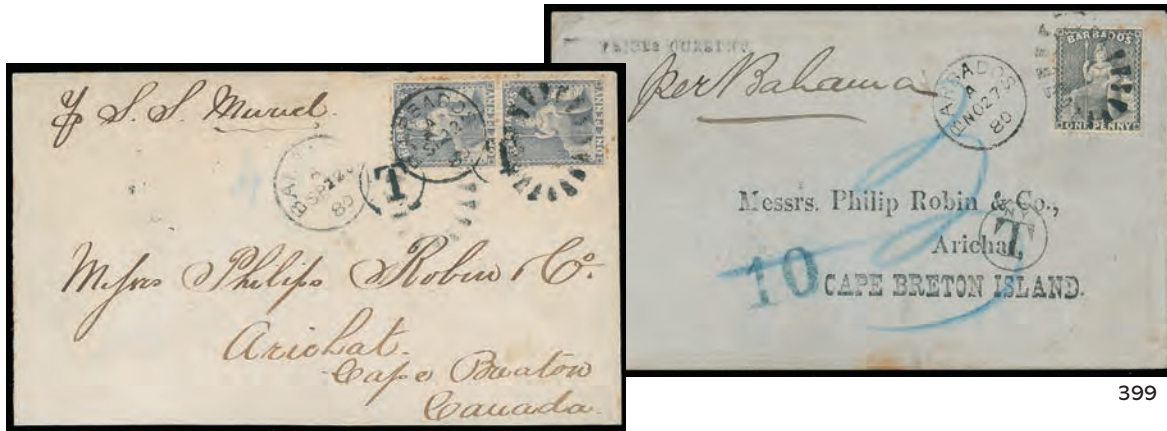 p S. S. Muriel.
BARBADOS
A
80
T
T
ONE PENNY
ONE PENNY
Messrs Philips Robin & Co.
Arichat.
Cape Breaton
Canada.
PRICES CURRENT
per Bahama
BARBADOS
A
NO 27
80
BARBADOS
ONE PENNY
Messrs. Philip Robin & Co.,
Arichat,
NY
T
10
CAPE BRETON ISLAND.
399